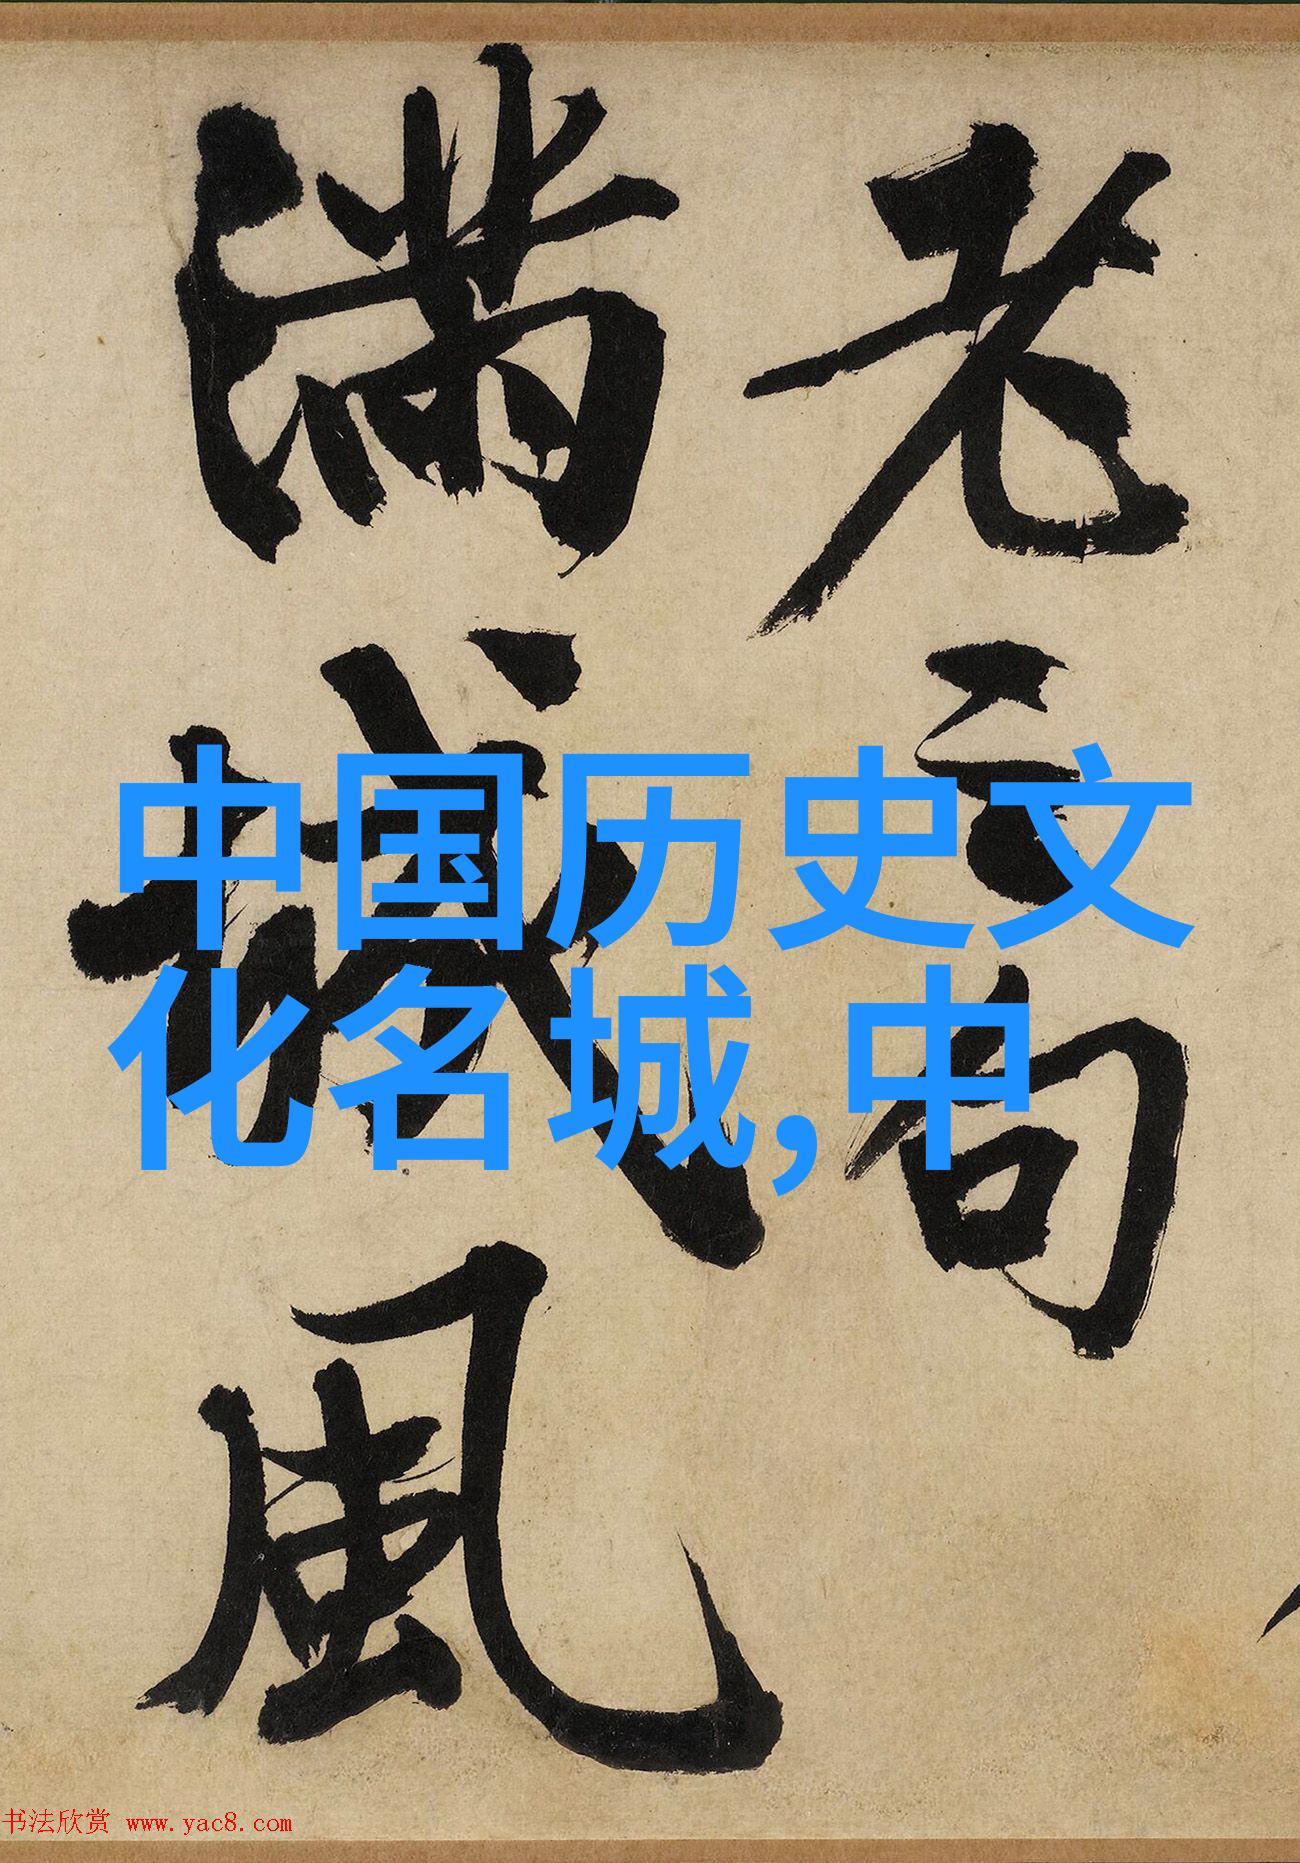 老
句
滿城風
中国历史文
化名城,中
书法欣赏 www.yac8.com